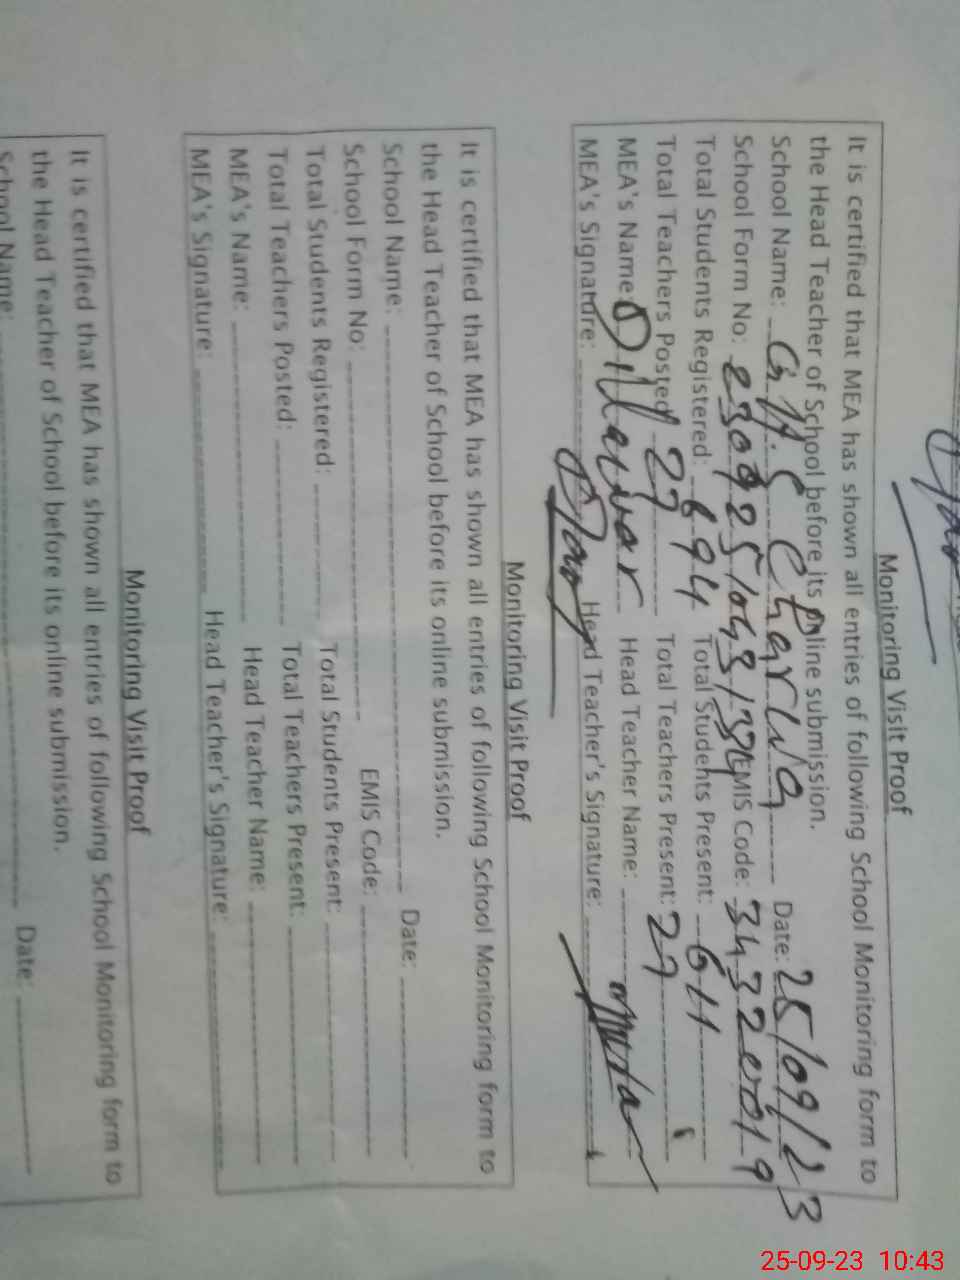 Monitoring Visit Proof
It is certified that MEA has shown all entries of following School Monitoring form to
the Head Teacher of School before its online submission.
School Name: G.H.S Charwa Date: 25/09/23
School Form No: 230925/043/134 EMIS Code: 34320019
Total Students Registered: 694 Total Students Present: 611
Total Teachers Posted: 27 Total Teachers Present: 27
MEA's Name: Dilawar Head Teacher Name:
MEA's Signature: Head Teacher's Signature:
Monitoring Visit Proof
It is certified that MEA has shown all entries of following School Monitoring form to
the Head Teacher of School before its online submission.
School Name: Date:
School Form No: EMIS Code:
Total Students Registered: Total Students Present:
Total Teachers Posted: Total Teachers Present:
MEA's Name: Head Teacher Name:
MEA's Signature: Head Teacher's Signature:
Monitoring Visit Proof
It is certified that MEA has shown all entries of following School Monitoring form to
the Head Teacher of School before its online submission.
School Name: Date:
25-09-23 10:43